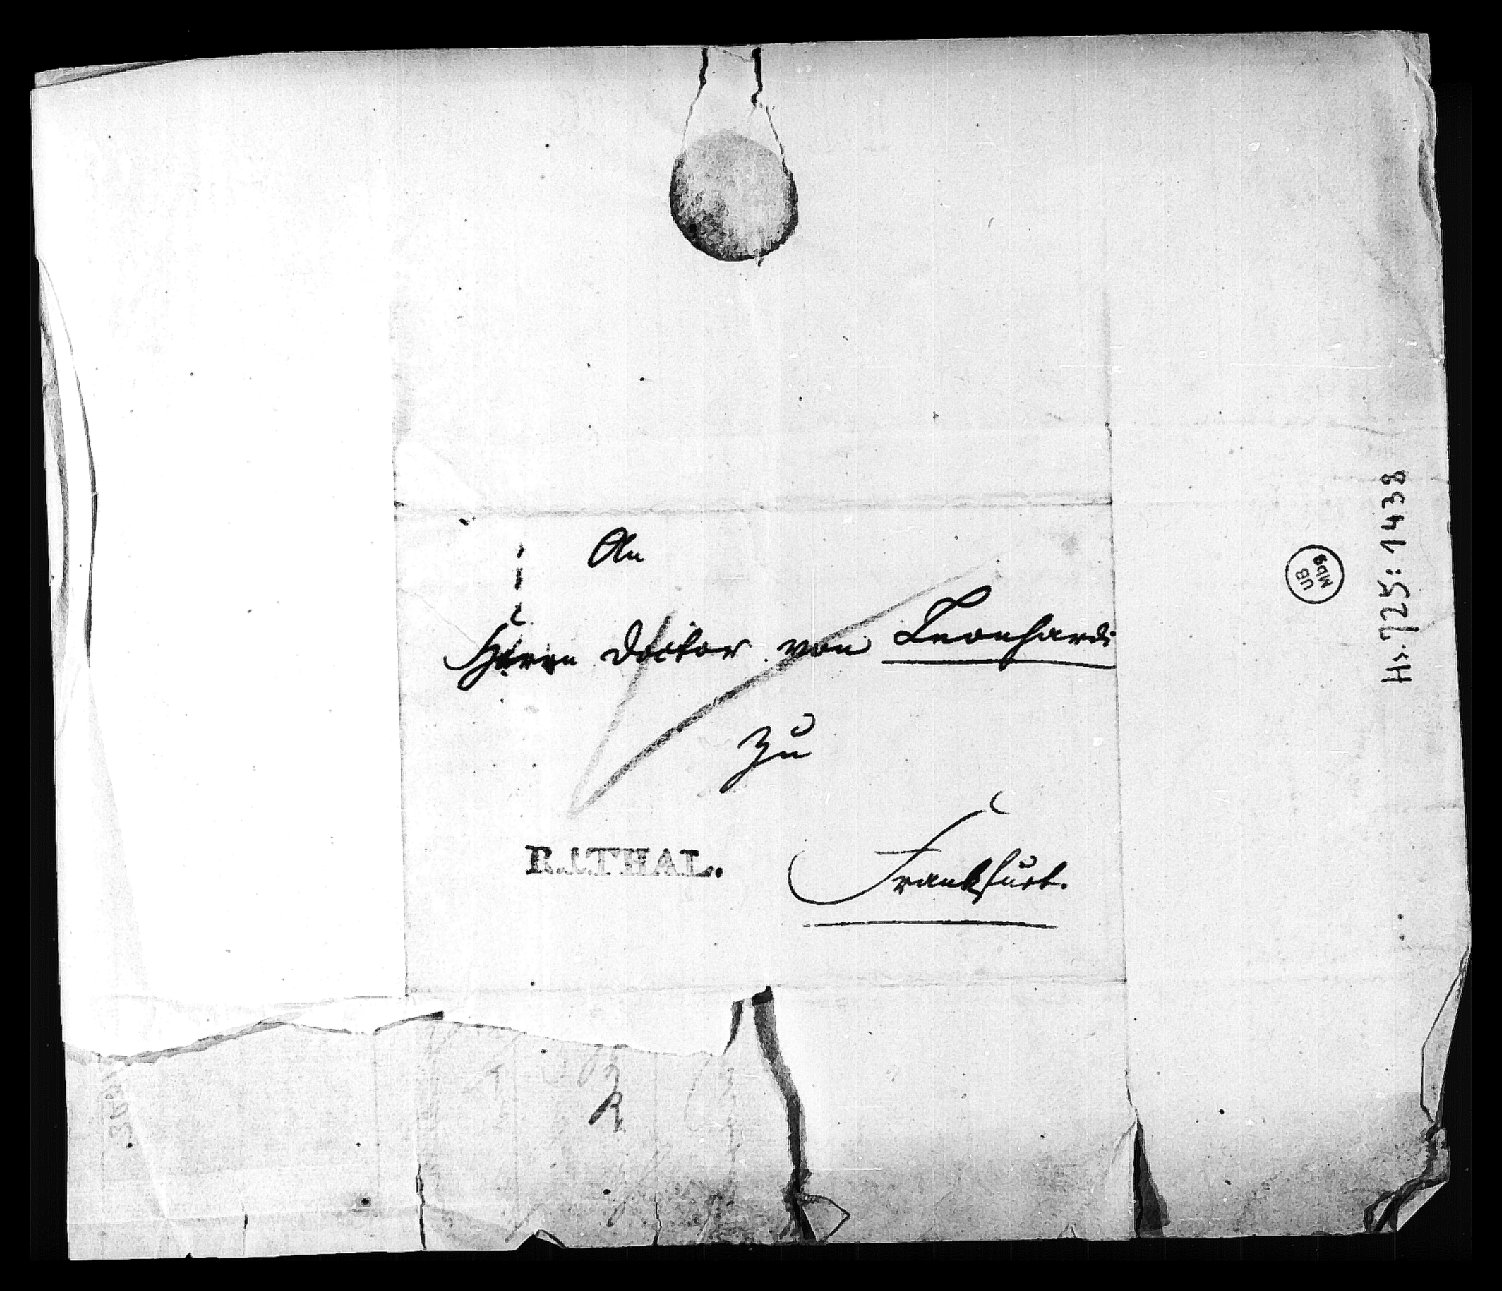 An
Herrn Doctor von Leonhardi
zu
R.I.THAL.
Frankfurt.
UB
Mbg
Hs. 725: 1438